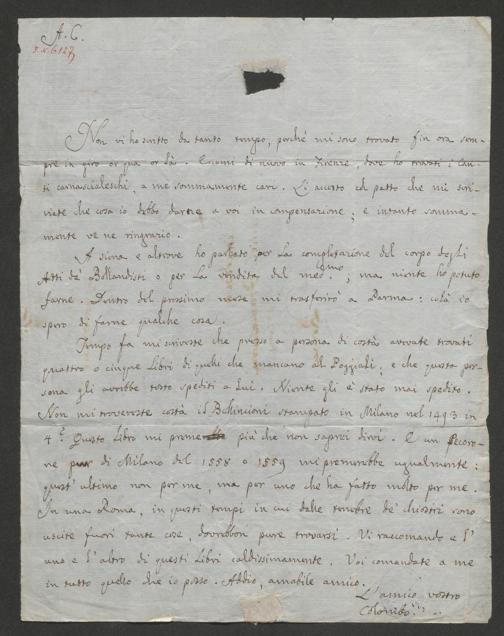 A. C.
Non vi ho scritto da tanto tempo, perché mi sono trovato fin ora sem-
pre in giro or qua or là. Eccomi di nuovo in Firenze, dove ho trovati i Can-
ti carnascialeschi, a me sommamente cari. Li accetto col patto che mi scri-
viate che cosa io debbo darne a voi in compensazione; e intanto somma-
mente ve ne ringrazio.
A Siena e altrove ho parlato per la completazione del corpo degli
Atti de' Bollandisti o per la vendita del med.smo; ma niente ho potuto
farne. Dentro del prossimo mese mi trasferirò a Parma: colà io
spero di farne qualche cosa.
Tempo fa mi scriveste che presso a persona di costà avevate trovati
quattro o cinque Libri di quelli che mancano al Poggiali; e che questa per-
sona gli avrebbe tosto spediti a Lui. Niente gli è stato mai spedito.
Non mi trovereste costà il Bellincioni stampato in Milano nel 1493 in
4.° Questo Libro mi preme più che non saprei dirvi. E un Pecoro-
ne di Milano del 1558 o 1559 mi premerebbe ugualmente:
quest' ultimo non per me, ma per uno che ha fatto molto per me.
In una Roma, in questi tempi in cui dalle tenebre de' chiostri sono
uscite fuori tante cose, dovrebbon pure trovarsi. Vi raccomando e l'
uno e l' altro di questi Libri caldissimamente. Voi comandate a me
in tutto quello che io posso. Addio, amabile amico.
L'amico vostro
Colombo